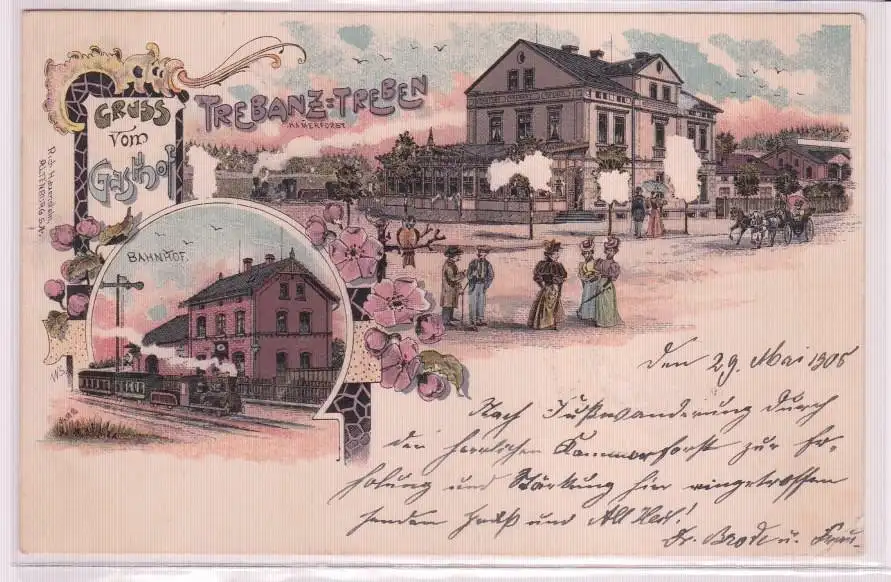 GRUSS
vom
Gasthof
TREBANZ=TREBEN
KAMERFORST
ALTENBURG S/A.
BAHNHOF.
den 29. Mai 1908
Nach Fußwanderung durch
den herrlichen Kammerforst zur Er-
holung und Stärkung hier eingetroffen
senden Gruß und All Heil!
Dr. Brode u. Frau